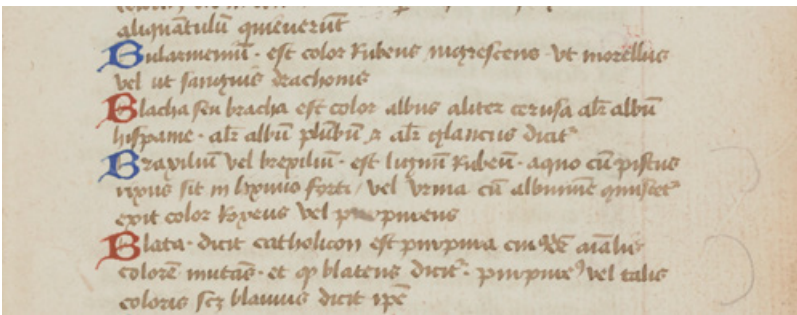 aliquātulū quieuerūt
Bularmeniū · est color Rubeus nigrescens · vt morellus
vel ut sanguis drachonis
Blacha seu bracha est color albus aliter cerusa alr̄ albū
hispanie · alr̄ albū plūbū & alr̄ glaucus dicit
Braxiliū vel brexiliū · est lignū Rubeū · a quo cū
sit in lixiuio forti / vel vrina cū albumine
exit color Roxeus vel purpureus
Blata · dicit catholicon est purpura
colorē mutās · et blateus dicit · purpure9 vel talis
coloris scz blauius dicit ipē